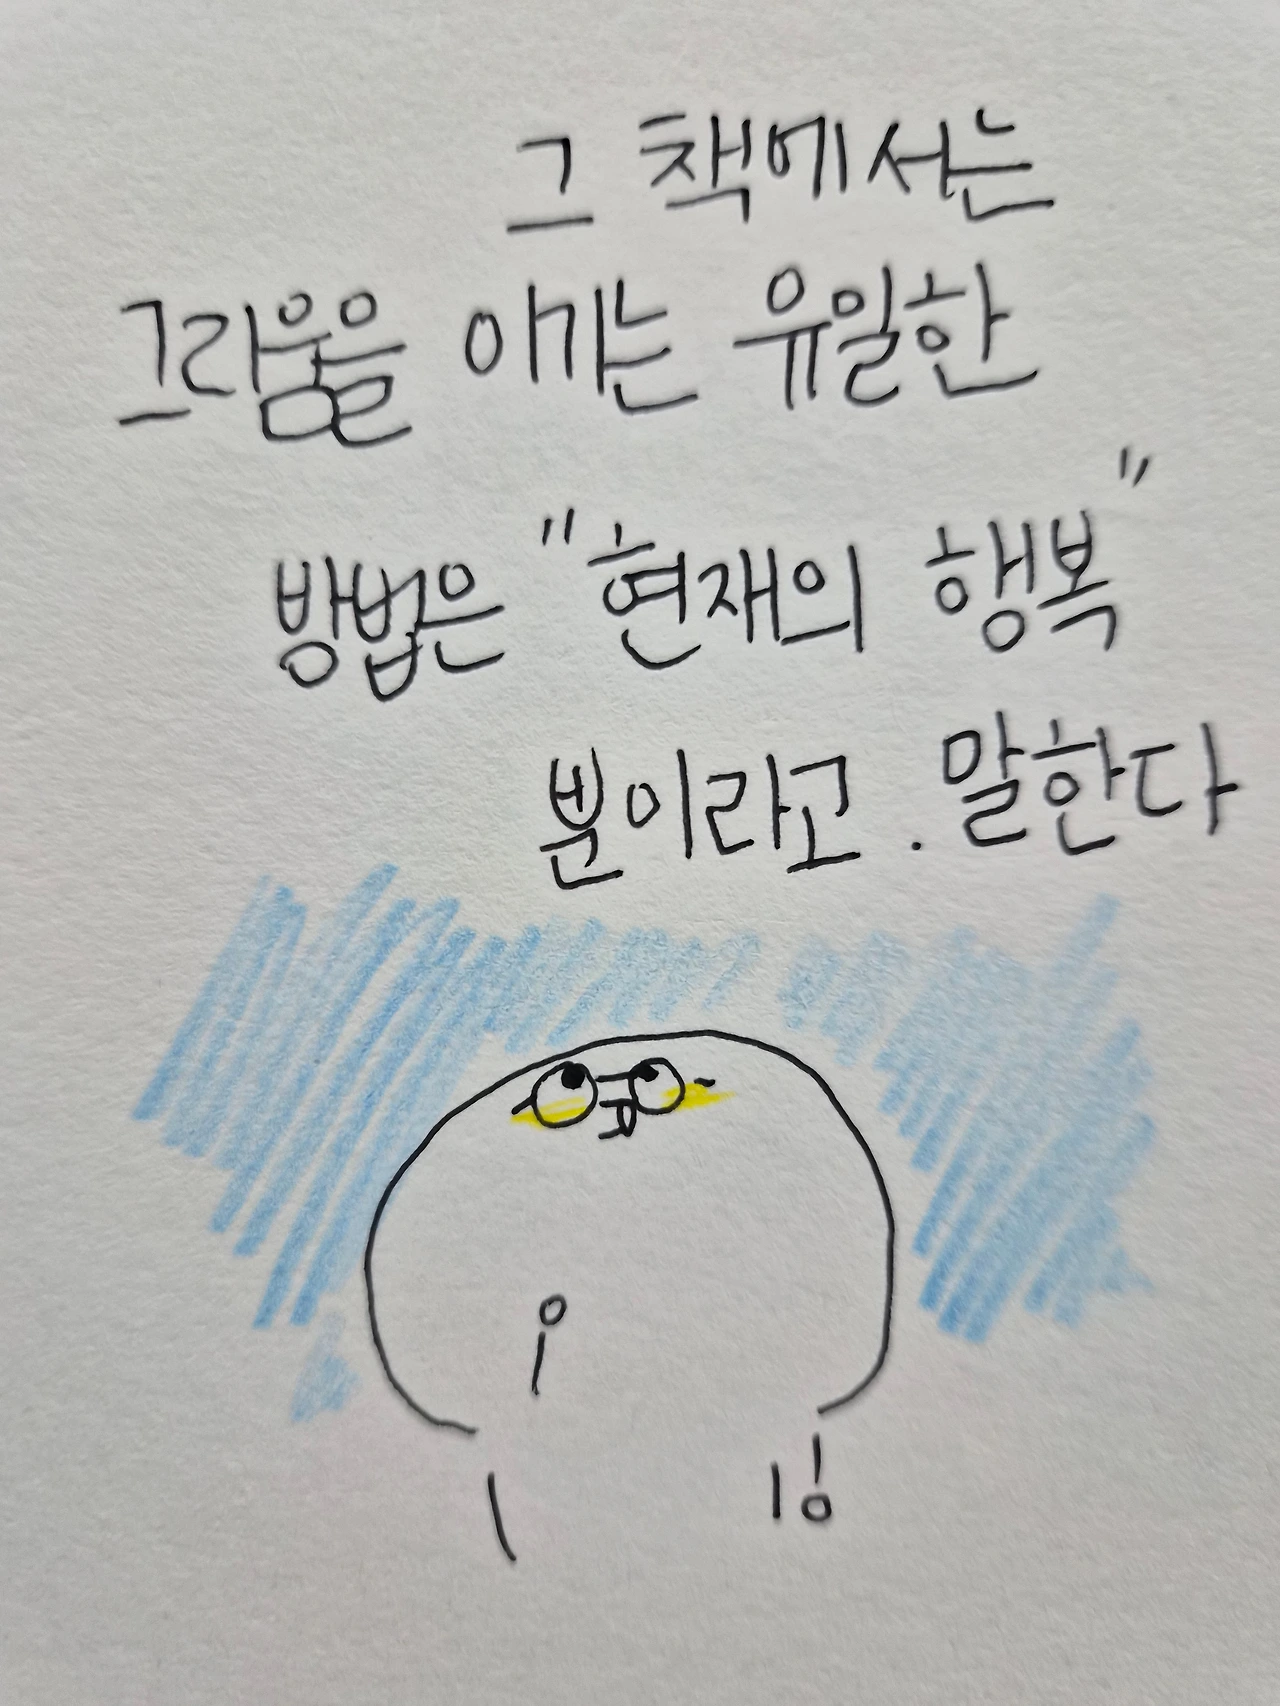 그 책에서는
그리움을 이기는 유일한
방법은 "현재의 행복"
뿐이라고. 말한다